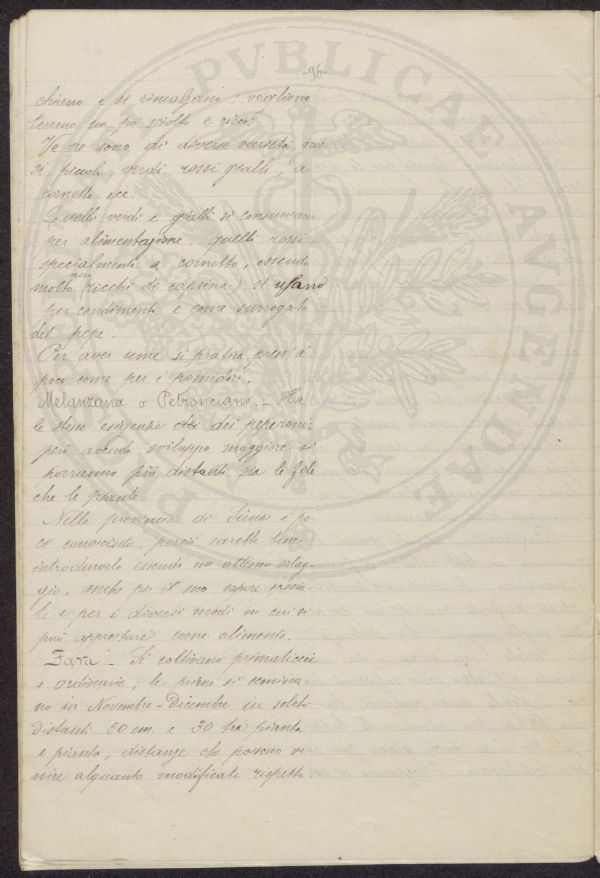 -96-
chieno e si rincalzano; vogliono
terreno un po' sciolto e ricco.
Ve ne sono di diverse varietà, gros
si, piccoli, verdi, rossi gialli, a
cornetto ecc.
Quelli verdi e gialli si consumano
per alimentazione, quelli rossi
specialmente a cornetto, essendo
molto acri (ricchi di capsina) si usano
per condimento e come surrogato
del pepe.
Per aver seme si pratica press'a
poco come per i pomidori.
Melanzana o Petronciano. - Ha
le stesse esigenze dei peperoni;
però avendo sviluppo maggiore si
porranno più distanti sia le file
che le piante.
Nella provincia di Siena è po-
co conosciuto, perciò sarebbe bene
introdurvelo essendo un ottimo ortag-
gio, anche per il suo sapore specia-
le e per i diversi modi in cui si
può apprestare come alimento.
Fava. - Si coltivano primaticcie
e ordinarie; le prime si semina-
no in Novembre-Dicembre in solchi
distanti 50 cm. e 30 tra pianta
e pianta, distanze che possono ve-
nire alquanto modificate rispetto
PUBLICAE AVGENDAE